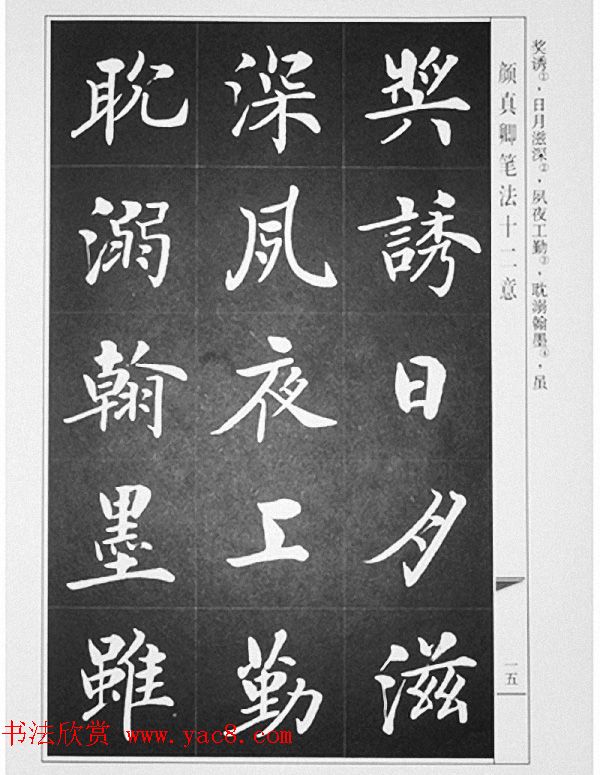 奖诱①，日月滋深②，夙夜工勤③，耽溺翰墨④，虽
颜真卿笔法十二意
一五
獎誘日月滋
深夙夜工勤
耽溺翰墨雖
书法欣赏 www.yac8.com